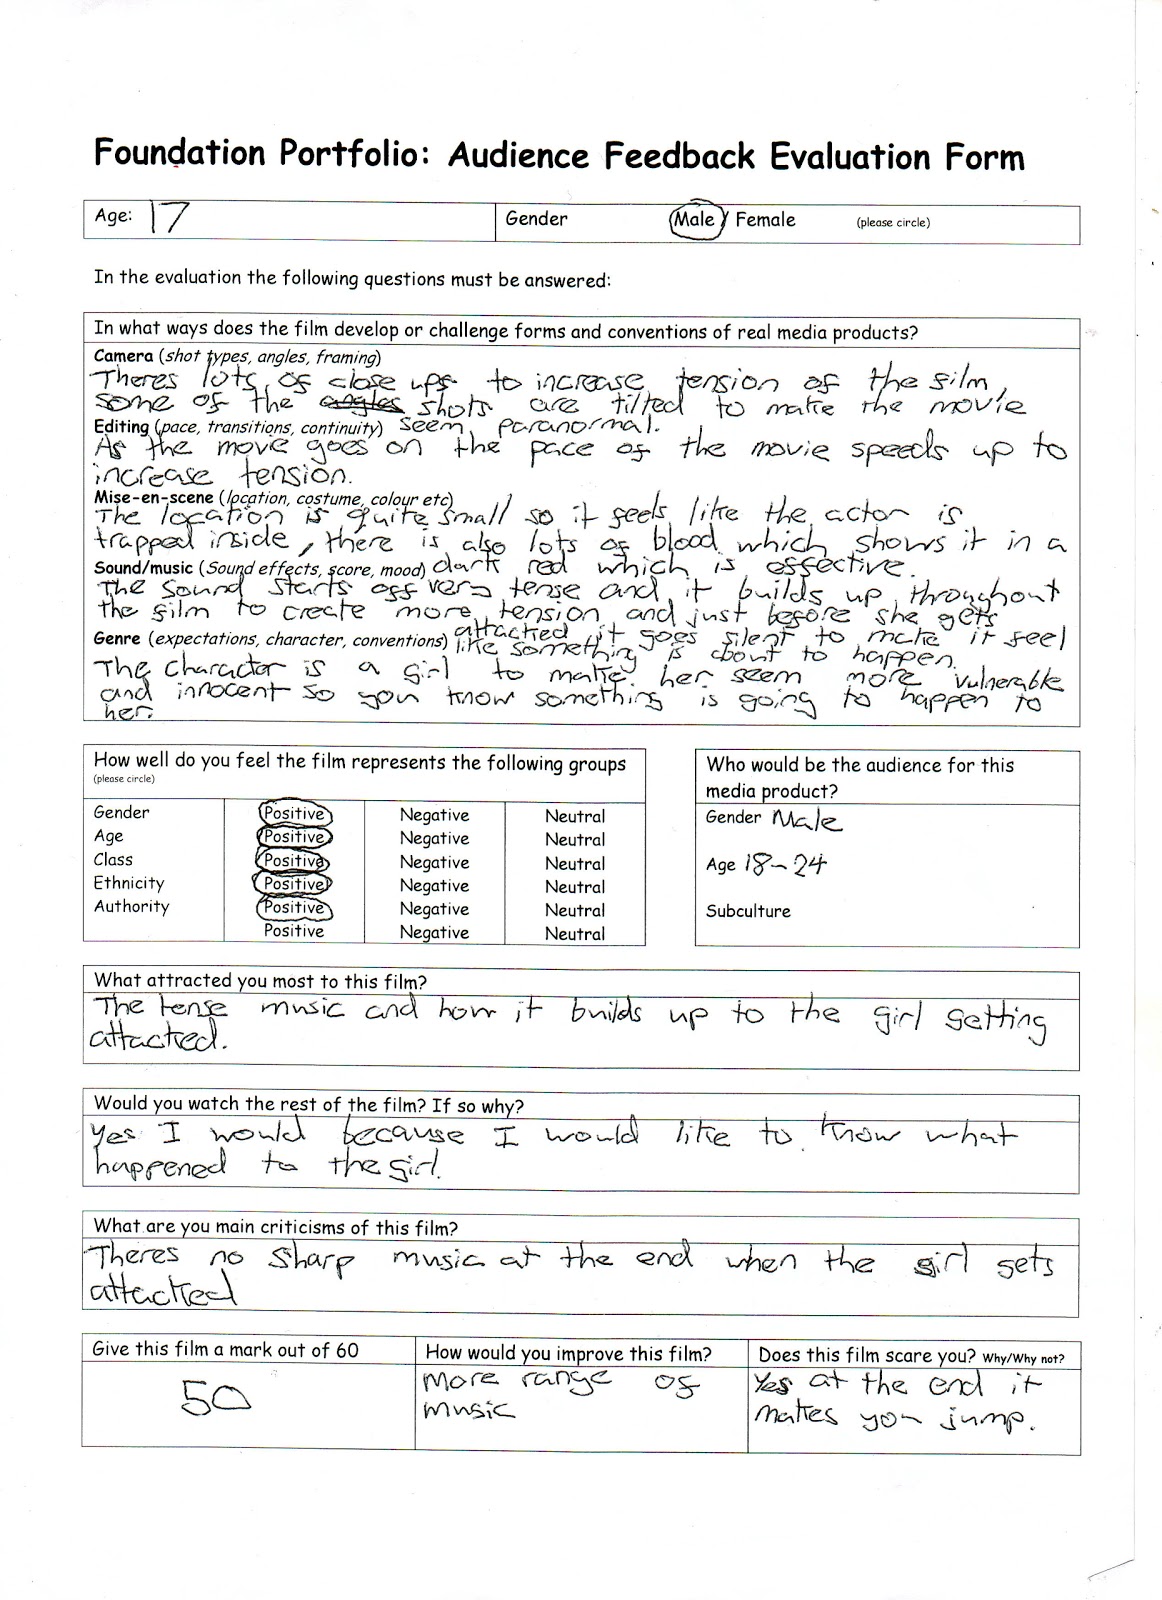 Foundation Portfolio: Audience Feedback Evaluation Form
Age: 17 Gender Male / Female (please circle)
In the evaluation the following questions must be answered:
In what ways does the film develop or challenge forms and conventions of real media products?
Camera (shot types, angles, framing)
Theres lots of close ups to increase tension of the film,
some of the angles shots are tilted to make the movie
Editing (pace, transitions, continuity) seem paranormal.
As the movie goes on the pace of the movie speeds up to
increase tension.
Mise-en-scene (location, costume, colour etc)
The location is quite small so it feels like the actor is
trapped inside, there is also lots of blood which shows it in a
Sound/music (Sound effects, score, mood) dark red which is effective.
The sound starts off very tense and it builds up throughout
the film to create more tension and just before she gets
Genre (expectations, character, conventions) attacked it goes silent to make it feel
like something is about to happen.
The character is a girl to make her seem more vulnerable
and innocent so you know something is going to happen to
her.
How well do you feel the film represents the following groups
(please circle)
Gender Positive Negative Neutral
Age Positive Negative Neutral
Class Positive Negative Neutral
Ethnicity Positive Negative Neutral
Authority Positive Negative Neutral
Positive Negative Neutral
Who would be the audience for this
media product?
Gender Male
Age 18-24
Subculture
What attracted you most to this film?
The tense music and how it builds up to the girl getting
attacked.
Would you watch the rest of the film? If so why?
Yes I would because I would like to know what
happened to the girl.
What are you main criticisms of this film?
Theres no sharp music at the end when the girl gets
attacked
Give this film a mark out of 60
50
How would you improve this film?
More range of
music
Does this film scare you? Why/Why not?
Yes at the end it
makes you jump.